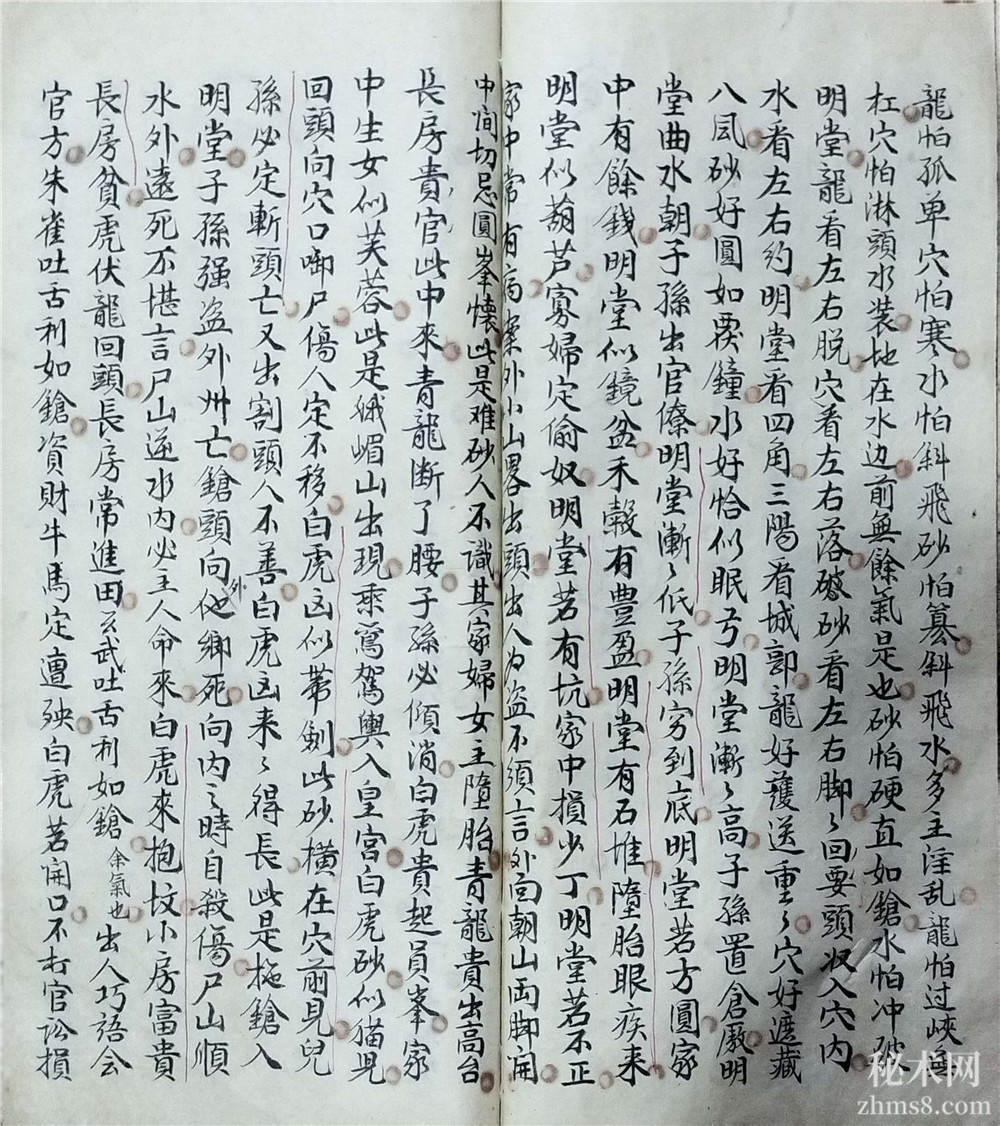 龍怕孤单穴怕寒水怕斜飛砂怕篡斜飛水多主淫乱龍怕过峽無
杠穴怕淋頭水装地在水边前無餘氣是也砂怕硬直如鎗水怕冲破
明堂龍看左右脱穴看左右落破砂看左右脚々回要頭収入穴内
水看左右約明堂看四角三陽看城郭龍好護送重々穴好遮藏
八風砂好圓如覆鐘水好恰似眠弓明堂漸々高子孫置倉廒明
堂曲水朝子孫出官僚明堂漸々低子孫穷到底明堂若方圓家
中有餘錢明堂似鏡盆禾穀有豊盈明堂有石堆墮胎眼疾来
明堂似葫芦寡婦定偷奴明堂若有坑家中損少丁明堂若不正
家中常有病案外小山畧出頭出人为盗不須言外向朝山両脚開
中间切忌圓峯懐此是难砂人不識其家婦女主墮胎青龍貴出高台
長房貴官此中來青龍断了腰子孫必傾消白虎貴起員峯家
中生女似芙蓉此是峨嵋山出現乘鸞駕輿入皇宫白虎砂似猫児
回頭向穴口啣尸傷人定不移白虎凶似带劍此砂横在穴前見兒
孫必定斬頭亡又出割頭人不善白虎凶来々得長此是拖鎗入
明堂子孫强盗外州亡鎗頭向外他鄉死向内之時自殺傷尸山順
水外遠死不堪言尸山逆水内必主人命來白虎來抱坟小房富貴
長房貧虎伏龍回頭長房常進田玄武吐舌利如鎗余氣也出人巧語会
官方朱雀吐舌利如鎗資財牛馬定遭殃白虎若開口不打官訟損
秘术网
zhms8.com